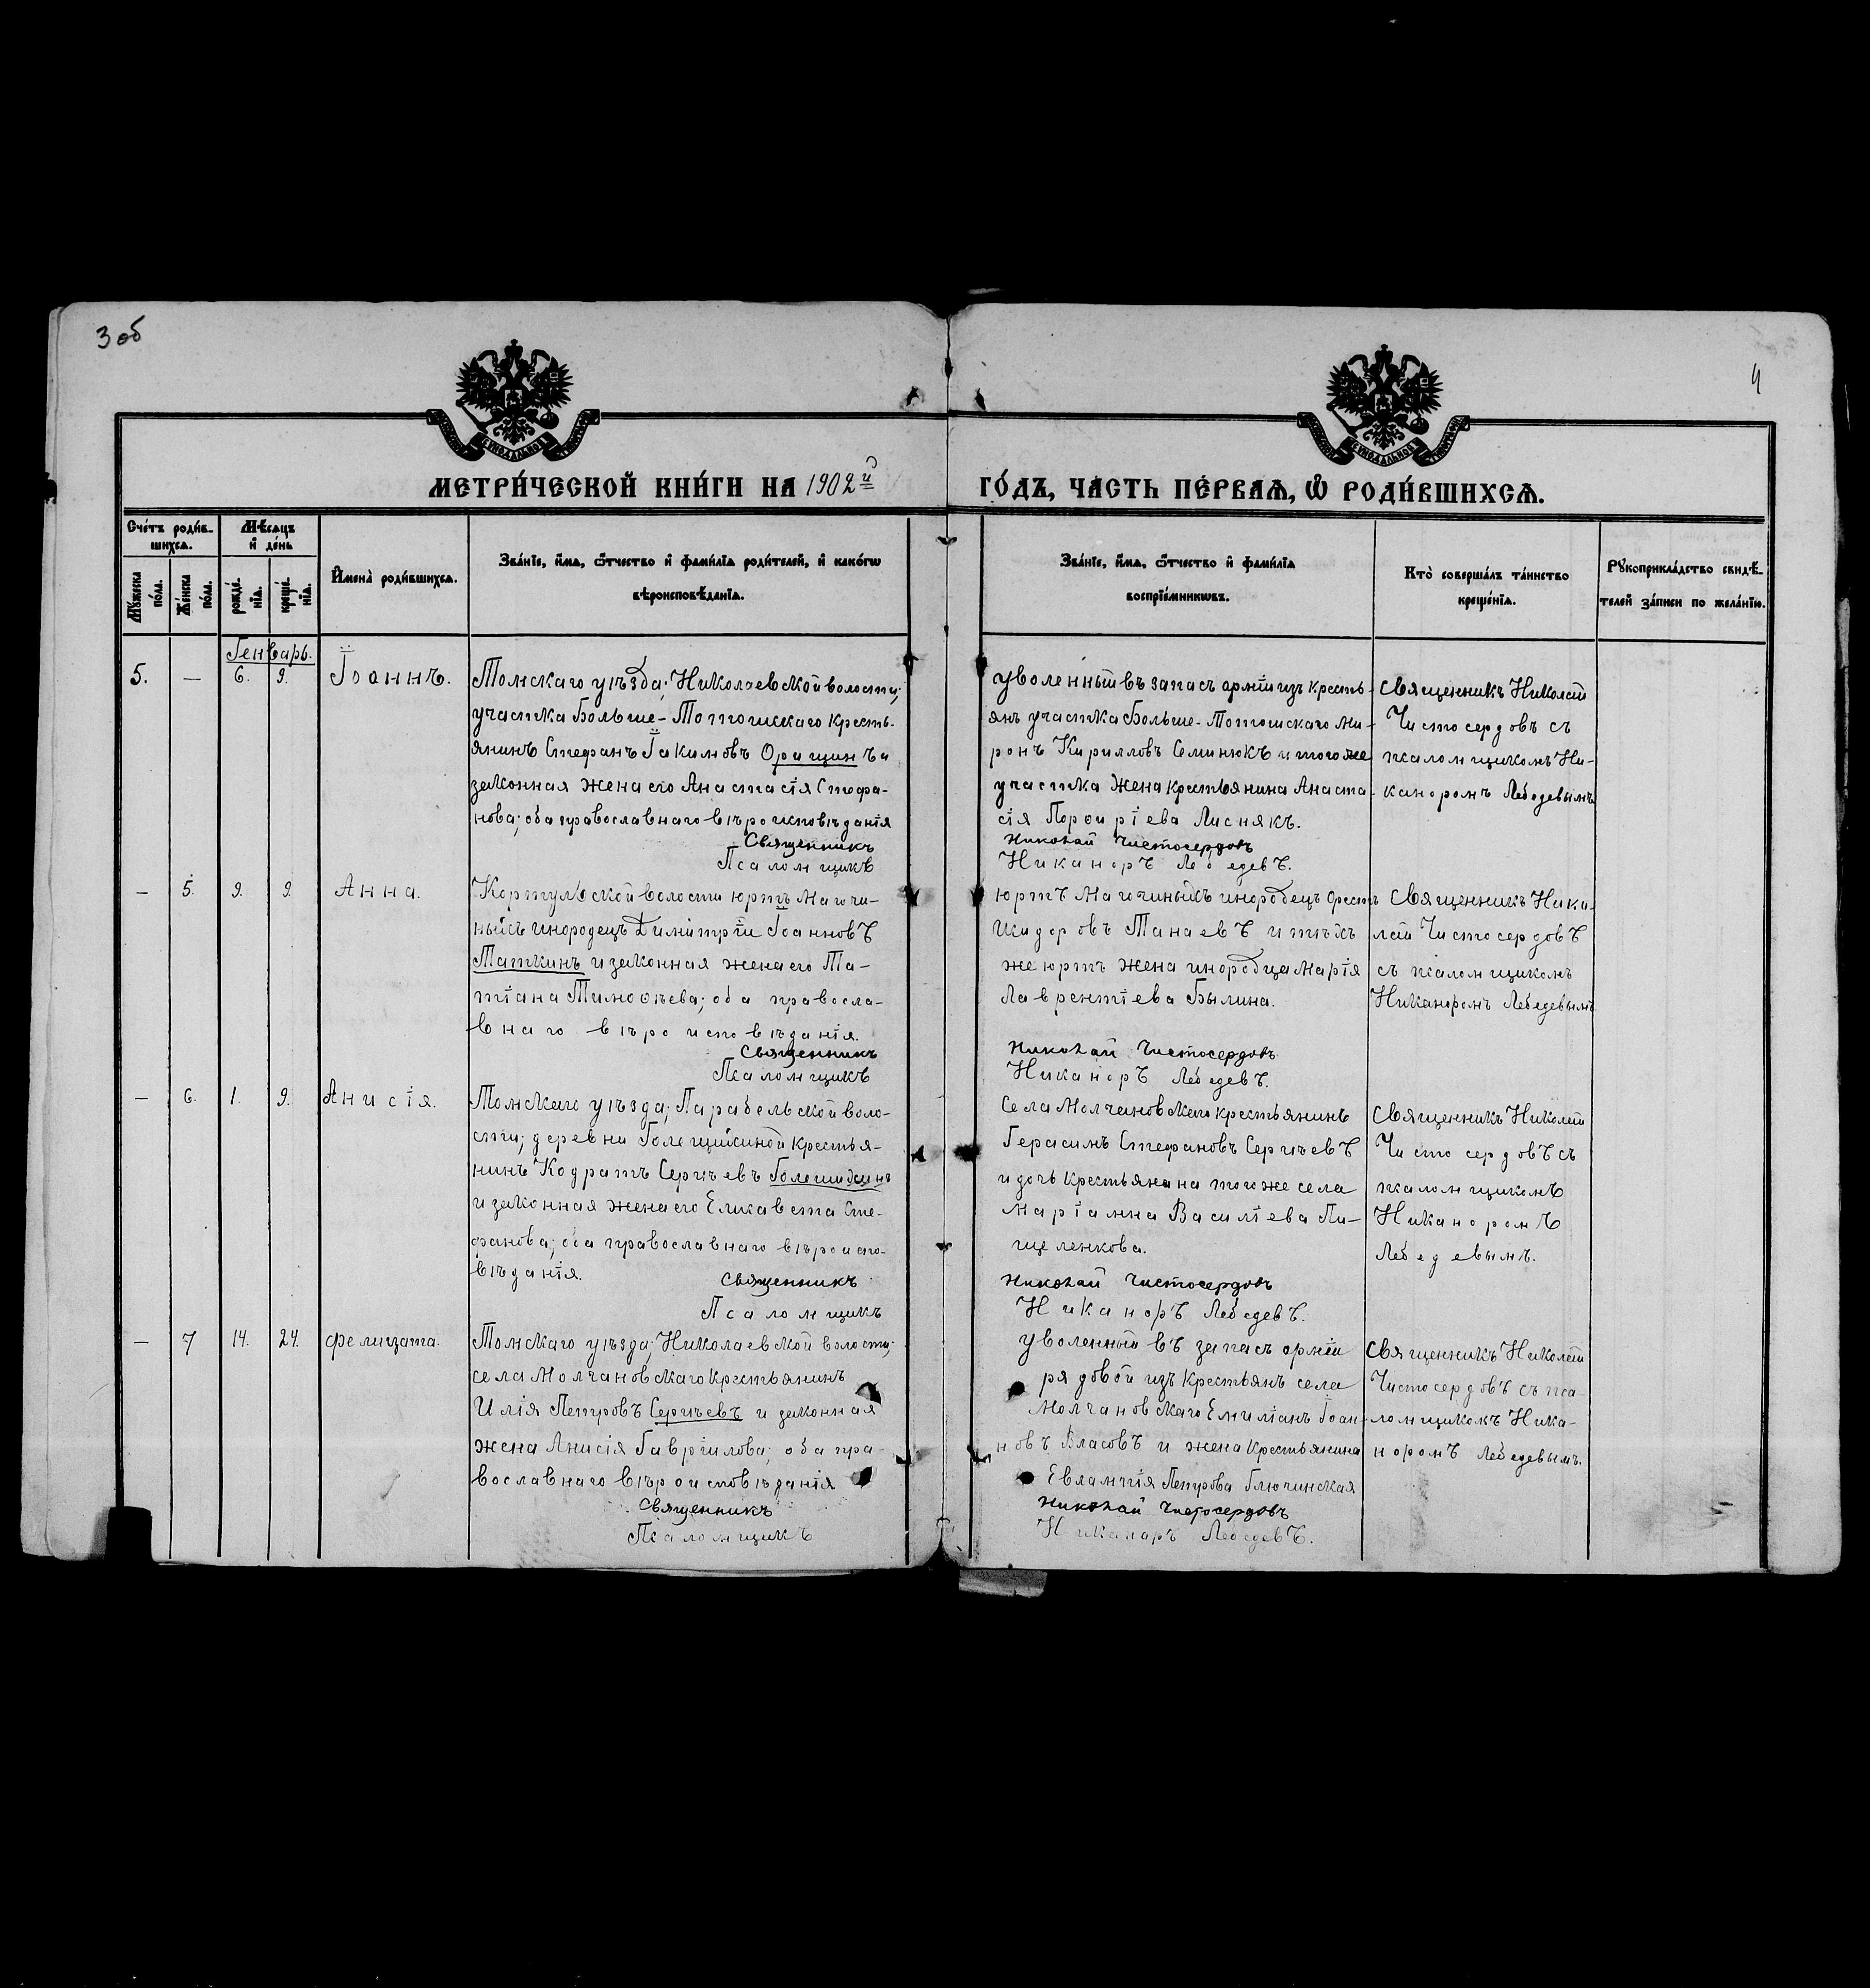 3 об
4
МЕТРИ́ЧЕСКОЙ КНИ́ГИ НА 1902й
ГО́ДЪ, ЧАСТЬ ПЕ́РВАѦ, Ѡ РОДИ́ВШИХСѦ.
Сче́тъ роди́в-
шихсѧ.
Мѣ́сѧцъ
и҆ де́нь
Мꙋ́жеска
по́ла.
Же́нска
по́ла.
рожде́-
нїѧ.
креще́-
нїѧ.
И҆мена̀ роди́вшихсѧ.
Зва́нїе, и҆́мѧ, ѻ҆́тчество и҆ фами́лїѧ роди́телей, и҆ како́гѡ
вѣроисповѣ́данїѧ.
Зва́нїе, и҆́мѧ, ѻ҆́тчество и҆ фами́лїѧ
воспрїе́мникѡвъ.
Кто̀ соверша́лъ та́инство
креще́нїѧ.
Рꙋкоприкла́дство свидѣ́-
телей за́писи по жела́нїю.
Генварь.
5. — 6. 9. Іоаннъ.
Томскаго уѣзда; Николаевской волости;
участка Больше-Тотошскаго кресть-
янинъ Стефанъ Іакимовъ Оращинъ и
законная жена его Анастасія Стефа-
нова; оба православнаго вѣроисповѣданія
Священникъ
Псаломщикъ
уволенный въ запасъ арміи изъ кресть-
янъ участка Больше-Тотошскаго Ми-
ронъ Кирилловъ Семинюкъ и того же
участка жена крестьянина Анаста-
сія Порфиріева Лиснякъ.
Николай Чистосердовъ
Никаноръ Лебедевъ.
Священникъ Николай
Чистосердовъ съ
псаломщикомъ Ни-
каноромъ Лебедевымъ
— 5. 9. 9. Анна.
Кортульской волости юртъ Магочи-
ныхъ инородецъ Димитрій Іоанновъ
Таткинъ и законная жена его Та-
тіана Тимофѣева; оба правосла-
внаго вѣроисповѣданія.
Священникъ
Псаломщикъ
юртъ Магочиныхъ инородецъ
Исидоровъ Танаевъ и тѣхъ
же юртъ жена инородца Марія
Лаврентіева Былина.
Николай Чистосердовъ
Никаноръ Лебедевъ.
Священникъ Нико-
лай Чистосердовъ
съ псаломщикомъ
Никаноромъ Лебедевымъ
— 6. 1. 9. Анисія.
Томскаго уѣзда; Парабельской воло-
сти; деревни Голещихиной крестья-
нинъ Кодратъ Сергѣевъ Голещихинъ
и законная жена его Елисавета Сте-
фанова; оба православнаго вѣроиспо-
вѣданія.
Священникъ
Псаломщикъ
Села Молчановскаго крестьянинъ
Герасимъ Стефановъ Сергѣевъ
и дочь крестьянина того же села
Маріамна Василіева Пи-
щеленкова.
Николай Чистосердовъ
Никаноръ Лебедевъ.
Священникъ Николай
Чистосердовъ съ
псаломщикомъ
Никаноромъ
Лебедевымъ.
— 7 14. 24. Фелицата.
Томскаго уѣзда; Николаевской волости;
села Молчановскаго крестьянинъ
Илія Петровъ Сергѣевъ и законная
жена Анисія Гавріилова; оба пра-
вославнаго вѣроисповѣданія
Священникъ
Псаломщикъ
уволенный въ запасъ арміи
рядовой изъ крестьянъ села
Молчановскаго Емиліанъ Іоан-
новъ Власовъ и жена крестьянина
Евлампія Петрова Блючинская
Николай Чистосердовъ
Никаноръ Лебедевъ.
Священникъ Николай
Чистосердовъ съ пса-
ломщикомъ Ника-
норомъ Лебедевымъ.